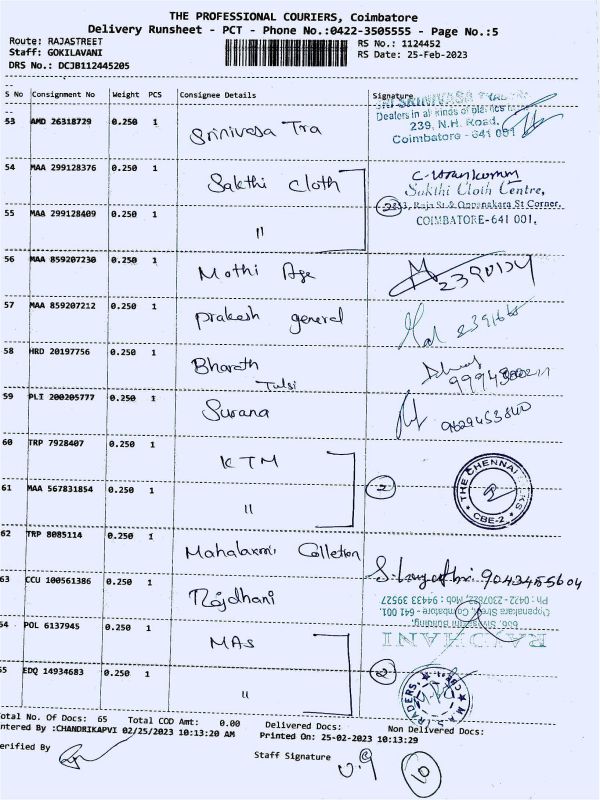 THE PROFESSIONAL COURIERS, Coimbatore
Delivery Runsheet - PCT - Phone No.:0422-3505555 - Page No.:5
Route: RAJASTREET
RS No.: 1124452
Staff: GOKILAVANI
RS Date: 25-Feb-2023
DRS No.: DCJB112445205
S No Consignment No Weight PCS Consignee Details Signature
53 AMD 26318729 0.250 1 Srinivasa Tra
SRI SRINIVASA
Dealers in all kinds of
239, N.H. Road,
Coimbatore - 641 001
54 MAA 299128376 0.250 1 Sakthi Cloth
Sakthi Cloth Centre,
Raja St & Oppanakara St Corner,
COIMBATORE-641 001.
55 MAA 299128409 0.250 1 "
56 MAA 859207230 0.250 1 Mothi Age
57 MAA 859207212 0.250 1 prakesh general
58 HRD 20197756 0.250 1 Bharath
Tulsi
59 PLI 200205777 0.250 1 Surana
60 TRP 7928407 0.250 1 KTM
2
THE CHENNAI
CBE-2
61 MAA 567831854 0.250 1 "
62 TRP 8085114 0.250 1 Mahalaxmi Colletion
63 CCU 100561386 0.250 1 Rajdhani
9043455604
Ph : 0422-2307822, Mob : 94433 39527
Oppanakara Street, Coimbatore - 641 001.
Building,
RAJDHANI
54 POL 6137945 0.250 1 MAS
55 EDQ 14934683 0.250 1 "
2
TRADERS
otal No. Of Docs: 65 Total COD Amt: 0.00 Delivered Docs: Non Delivered Docs:
ntered By :CHANDRIKAPVI 02/25/2023 10:13:20 AM Printed On: 25-02-2023 10:13:29
erified By
Staff Signature
10